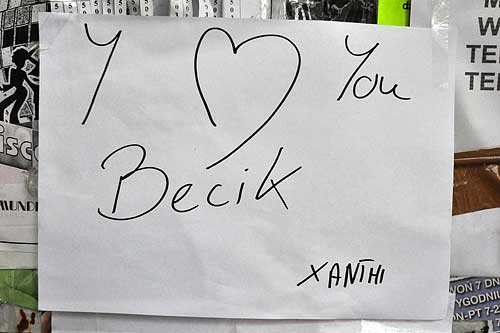 Y ♥ You
Becik
XANTHI
isco
MUND
M
W
TE
TEL
WON 7 DN
TYGODNIU
N-PT 7.2